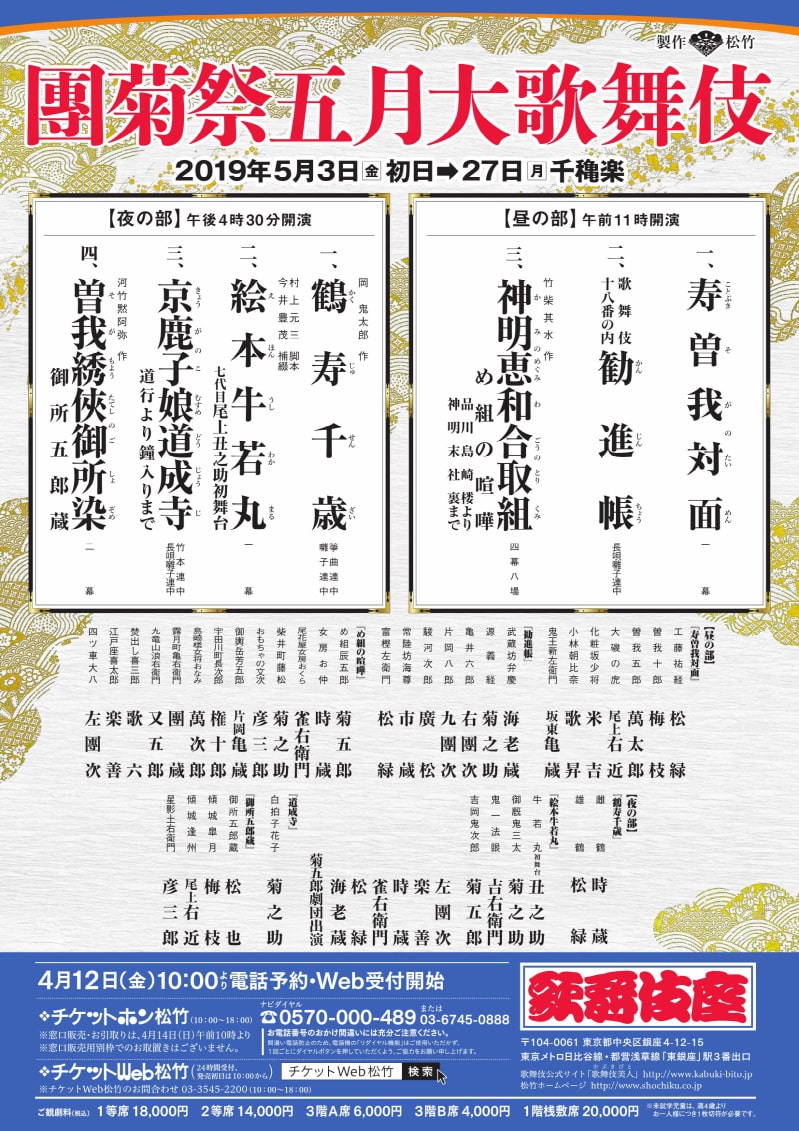 製作 松竹
團菊祭五月大歌舞伎
2019年5月3日金初日➡27日月千穐楽
【昼の部】午前11時開演
一、寿曽我対面
ことぶき そ がの たい めん
一幕
二、歌舞伎十八番の内 勧進帳
かん じん ちょう
長唄囃子連中
竹柴其水 作
三、神明恵和合取組
かみのめぐみ わ ごうの とり くみ
め組の喧嘩
品川島崎楼より
神明末社裏まで
四幕八場
【夜の部】午後4時30分開演
岡 鬼太郎 作
一、鶴寿千歳
かく じゅ せん ざい
箏曲連中
囃子連中
村上元三 脚本
今井豊茂 補綴
二、絵本牛若丸
え ほん うし わか まる
七代目尾上丑之助初舞台
一幕
三、京鹿子娘道成寺
きょう が のこ むすめ どう じょう じ
道行より鐘入りまで
竹本連中
長唄囃子連中
河竹黙阿弥 作
四、曽我綉俠御所染
そ が もよう たてしの ご しょ ぞめ
御所五郎蔵
二幕
【昼の部】
『寿曽我対面』
工藤祐経 松緑
曽我十郎 梅枝
曽我五郎 萬太郎
大磯の虎 尾上右近
化粧坂少将 米吉
小林朝比奈 歌昇
鬼王新左衛門 坂東亀蔵
『勧進帳』
武蔵坊弁慶 海老蔵
源義経 菊之助
亀井六郎 右團次
片岡八郎 九團次
駿河次郎 廣松
常陸坊海尊 市蔵
富樫左衛門 松緑
『め組の喧嘩』
め組辰五郎 菊五郎
女房お仲 時蔵
尾花屋女房おくら 雀右衛門
柴井町藤松 菊之助
おもちゃの文次 彦三郎
御輿岳芳五郎 片岡亀蔵
宇田川町長次郎 権十郎
島崎楼女将おなみ 萬次郎
露月町亀右衛門 團蔵
九竜山浪右衛門 又五郎
焚出し喜三郎 歌六
江戸座喜太郎 楽善
四ツ車大八 左團次
【夜の部】
『鶴寿千歳』
雌鶴 時蔵
雄鶴 松緑
『絵本牛若丸』
牛若丸 初舞台 丑之助
御厩鬼三太 菊之助
鬼一法眼 吉右衛門
吉岡鬼次郎 菊五郎
左團次
楽善
時蔵
雀右衛門
松緑
海老蔵
菊五郎劇団出演
『道成寺』
白拍子花子 菊之助
『御所五郎蔵』
御所五郎蔵 松也
傾城皐月 梅枝
傾城逢州 尾上右近
星影土右衛門 彦三郎
4月12日(金)10:00より電話予約・Web受付開始
チケットホン松竹(10:00〜18:00)
※窓口販売・お引取りは、4月14日(日)午前10時より
※窓口販売用別枠でのお取置きはございません。
ナビダイヤル
☎0570-000-489または03-6745-0888
お電話番号のおかけ間違いには充分ご注意ください。
間違い電話防止のため、電話機の「リダイヤル機能」はご使用いただかず、
1回ごとにダイヤルボタンを押していただくよう、ご協力をお願い申し上げます。
チケットWeb松竹(24時間受付、発売初日は10:00から)
チケットWeb松竹 検索
※チケットWeb松竹のお問合わせ 03-3545-2200(10:00〜18:00)
歌舞伎座
〒104-0061 東京都中央区銀座4-12-15
東京メトロ日比谷線・都営浅草線「東銀座」駅3番出口
歌舞伎公式サイト「歌舞伎美人」http://www.kabuki-bito.jp
かぶきびと
松竹ホームページ http://www.shochiku.co.jp
ご観劇料(税込) 1等席18,000円 2等席14,000円 3階A席6,000円 3階B席4,000円 1階桟敷席20,000円
※未就学児童は、満4歳より
お一人様につき1枚切符が必要です。